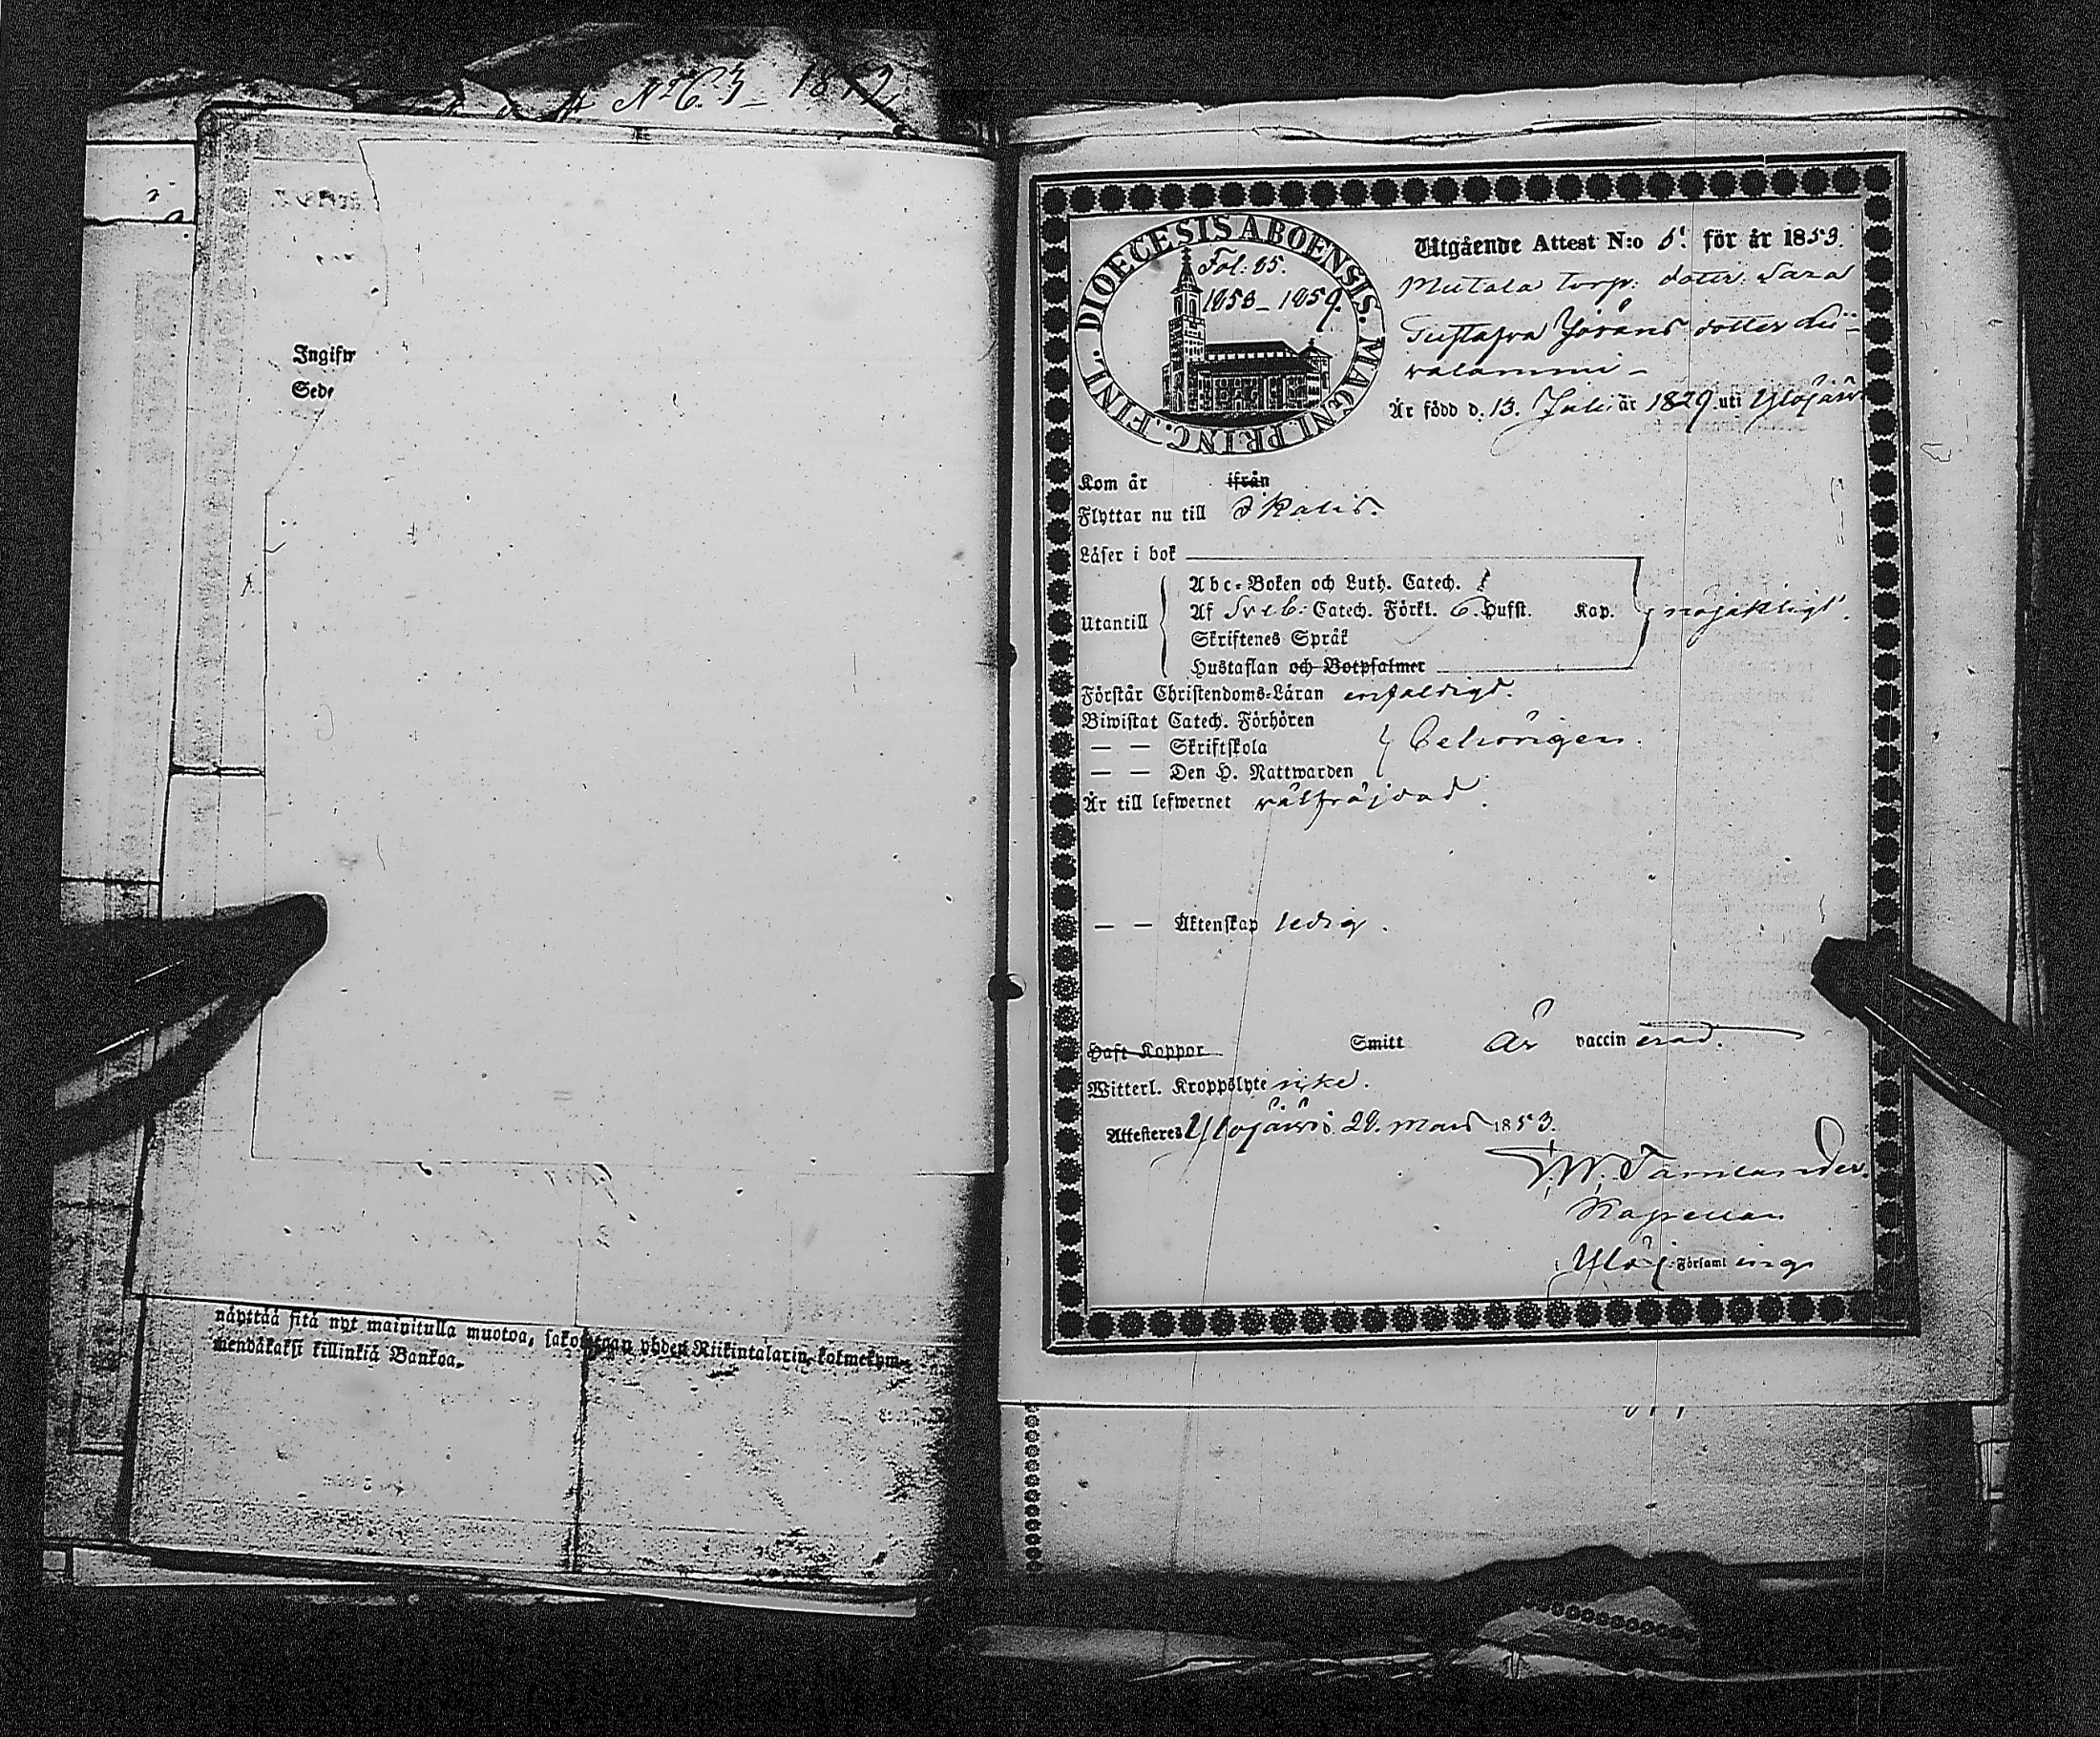 1872
Ingifw
Sede
näyttää sitä nyt mainitulla muotoa, sakotetaan yhden Riikintalarin, kolmekym-
mendäkaksi killinkiä Bankoa.
DIOECESIS ABOENSIS. MAGNI. PRINC. FINL.
Fol: 85.
1853-1859.
Utgående Attest N:o 5. för år 1853.
Mutala torp. dotter Sara
Gustafva Jörans dotter
valammi-
Är född d. 13. Juli år 1829. uti Ylöjärvi
Kom år ifrån
Flyttar nu till Ikalis.
Läser i bok
Abc-Boken och Luth. Catech.
Utantill Af Sveb: Catech. Förkl. 6. Hufst. Kap. nöjaktligt.
Skriftenes Språk
Hustaflan och Botpsalmer
Förstår Christendoms-Läran enfaldigt.
Biwistat Catech. Förhören
— — Skriftskola behörigen.
— — Den H. Nattwarden
Är till lefwernet välfräjdad.
— — Äktenskap ledig.
Haft Koppor Smitt är vaccinerad.
Witterl. Kroppslyte icke.
Attesteres Ylöjärvi d. 29. Mars 1853.
Tamlander.
Kapellan
Ylöj. Församling